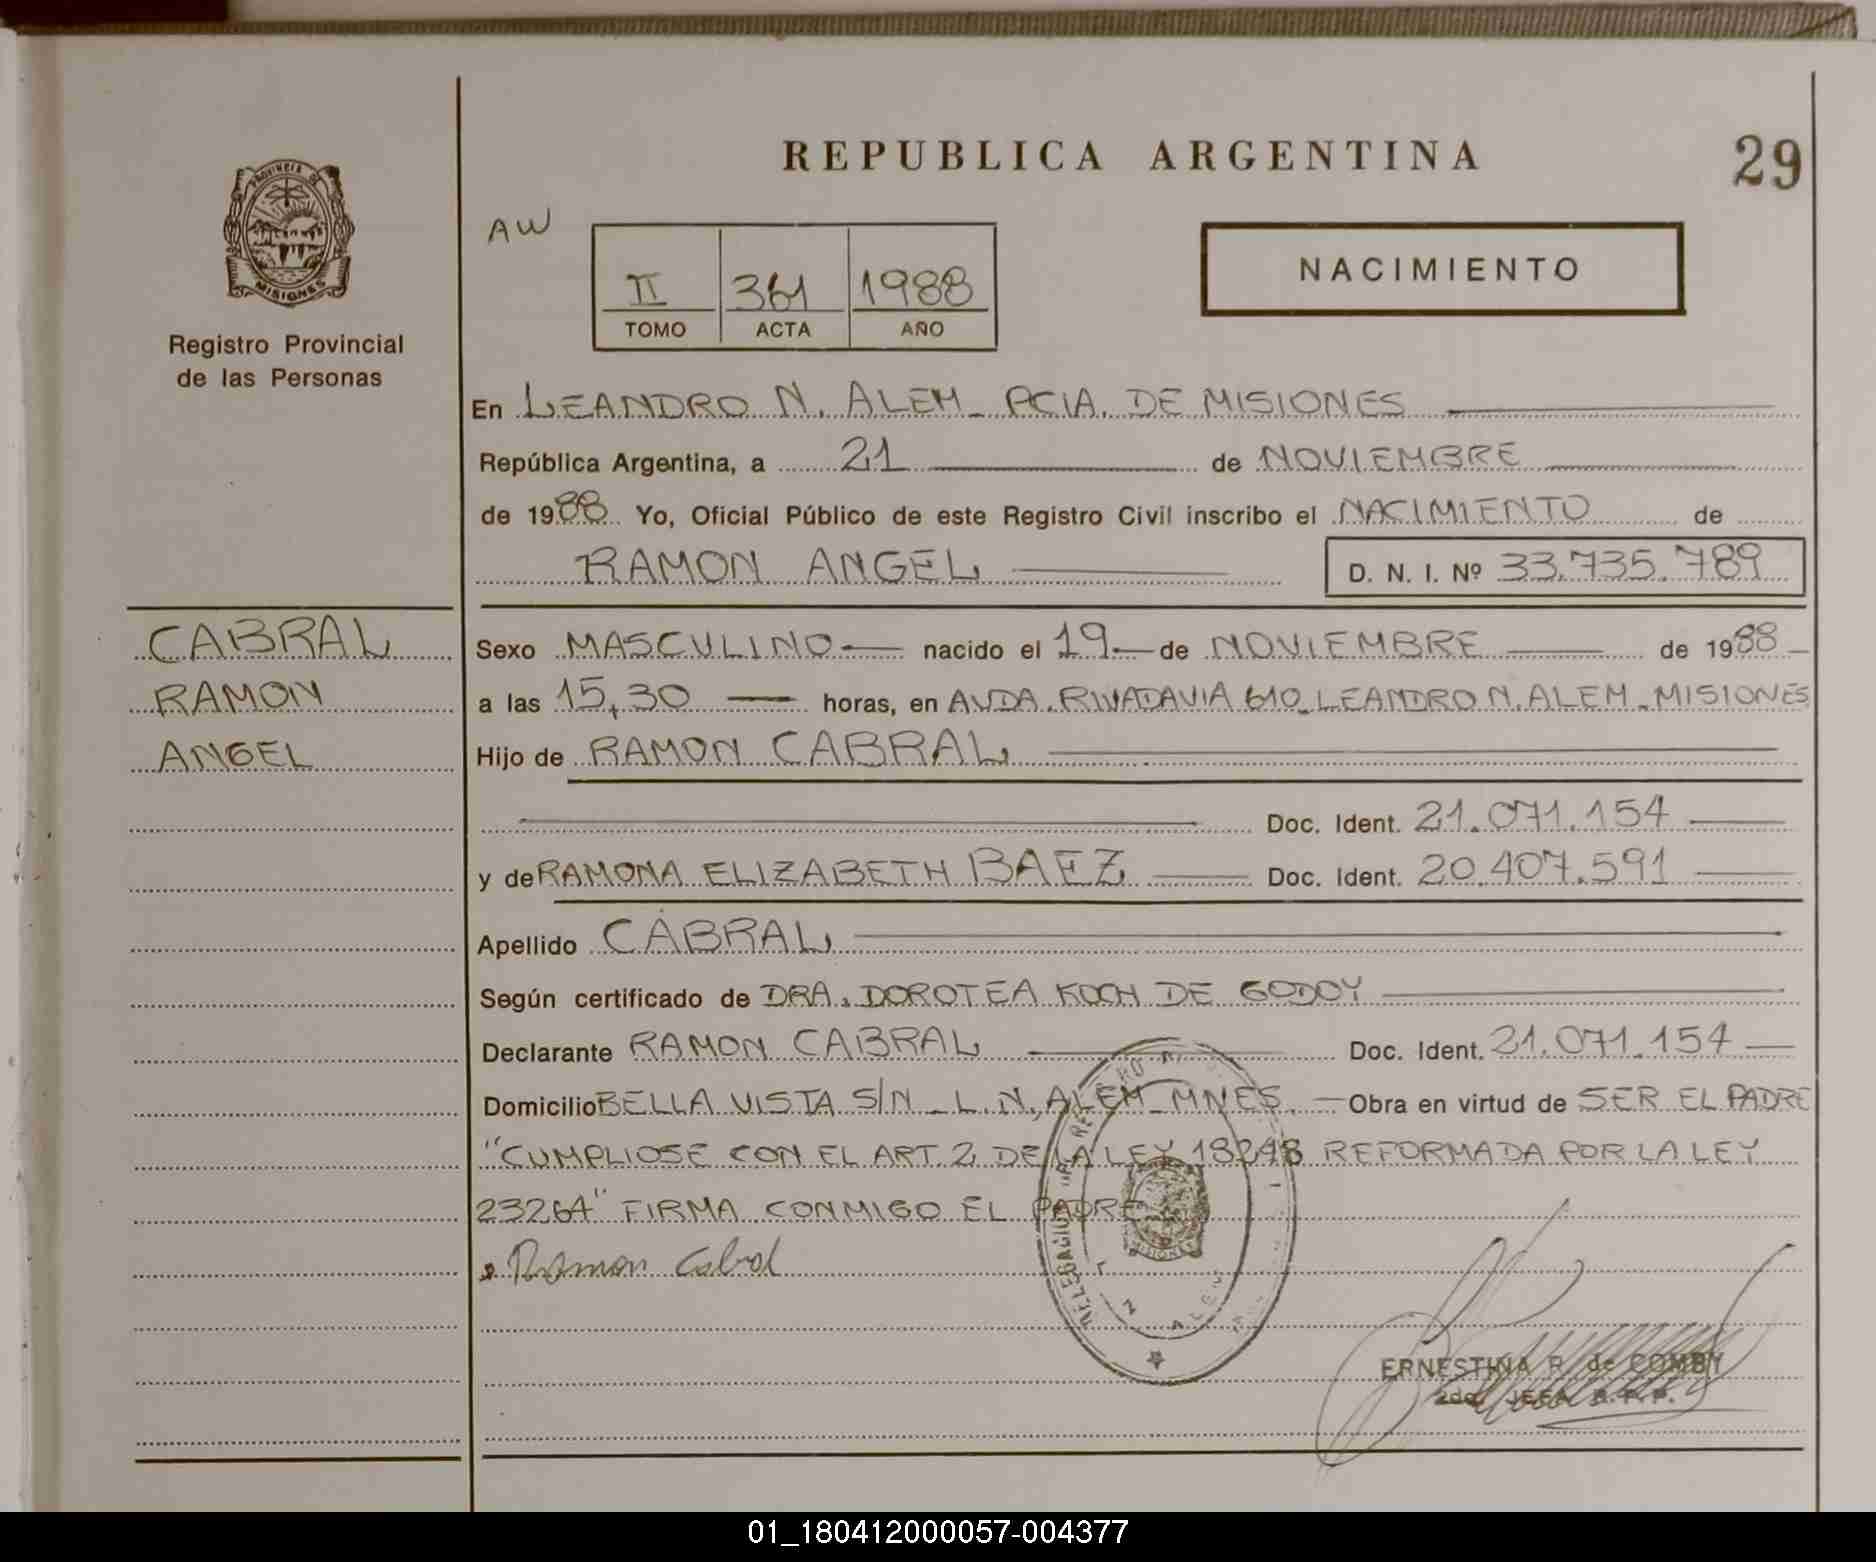 REPUBLICA ARGENTINA
29
PROVINCIA DE
MISIONES
Registro Provincial
de las Personas
AW
II 361 1988
TOMO ACTA AÑO
NACIMIENTO
En LEANDRO N. ALEM - PCIA. DE MISIONES
República Argentina, a 21 de NOVIEMBRE
de 1988 Yo, Oficial Público de este Registro Civil inscribo el NACIMIENTO de
RAMON ANGEL D. N. I. Nº 33.735.789
CABRAL
RAMON
ANGEL
Sexo MASCULINO nacido el 19 de NOVIEMBRE de 1988
a las 15,30 horas, en AVDA. RIVADAVIA 610 - LEANDRO N. ALEM - MISIONES
Hijo de RAMON CABRAL
Doc. Ident. 21.071.154
y de RAMONA ELIZABETH BAEZ Doc. Ident. 20.407.591
Apellido CABRAL
Según certificado de DRA. DOROTEA KOCH DE GODOY
Declarante RAMON CABRAL Doc. Ident. 21.071.154
Domicilio BELLA VISTA S/N - L.N. ALEM - MNES. Obra en virtud de SER EL PADRE
"CUMPLIOSE CON EL ART. 2 DE LA LEY 18248 REFORMADA POR LA LEY
23264" FIRMA CONMIGO EL PADRE
Ramon Cabral
MISIONES
ERNESTINA R. de COMBY
2da. JEFA R.P.P.
01_180412000057-004377